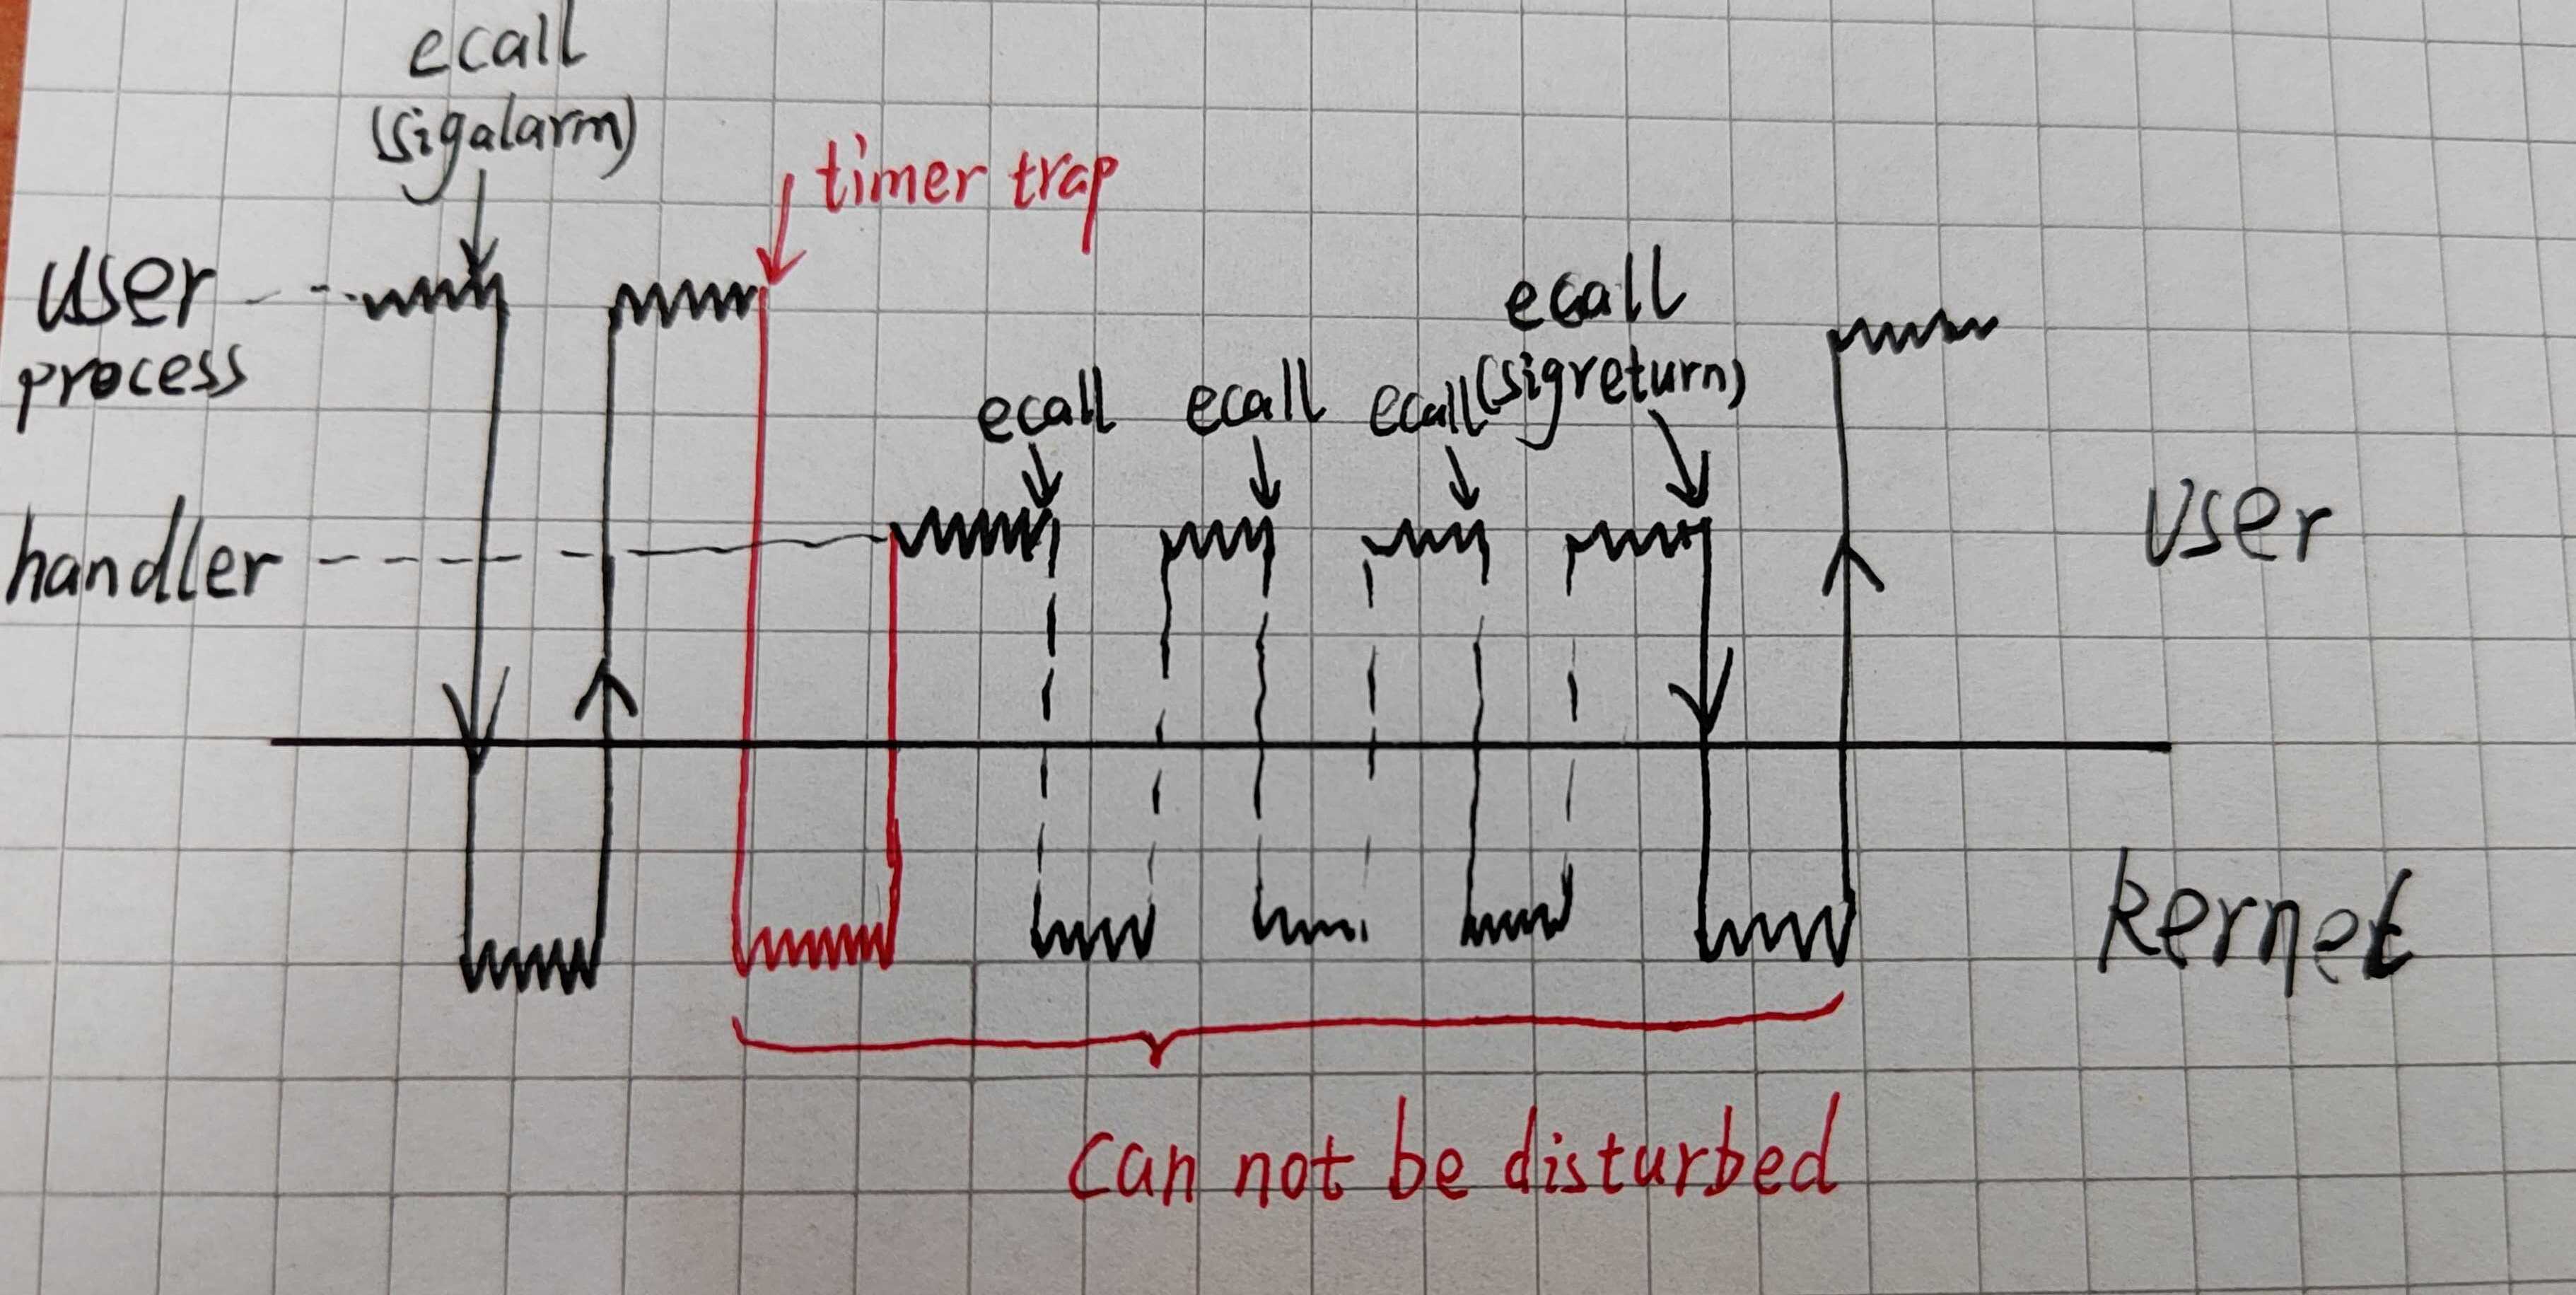 ecall
(sigalarm)
timer trap
user
process
ecall
(sigreturn)
ecall
ecall
ecall
handler
user
kernel
can not be disturbed